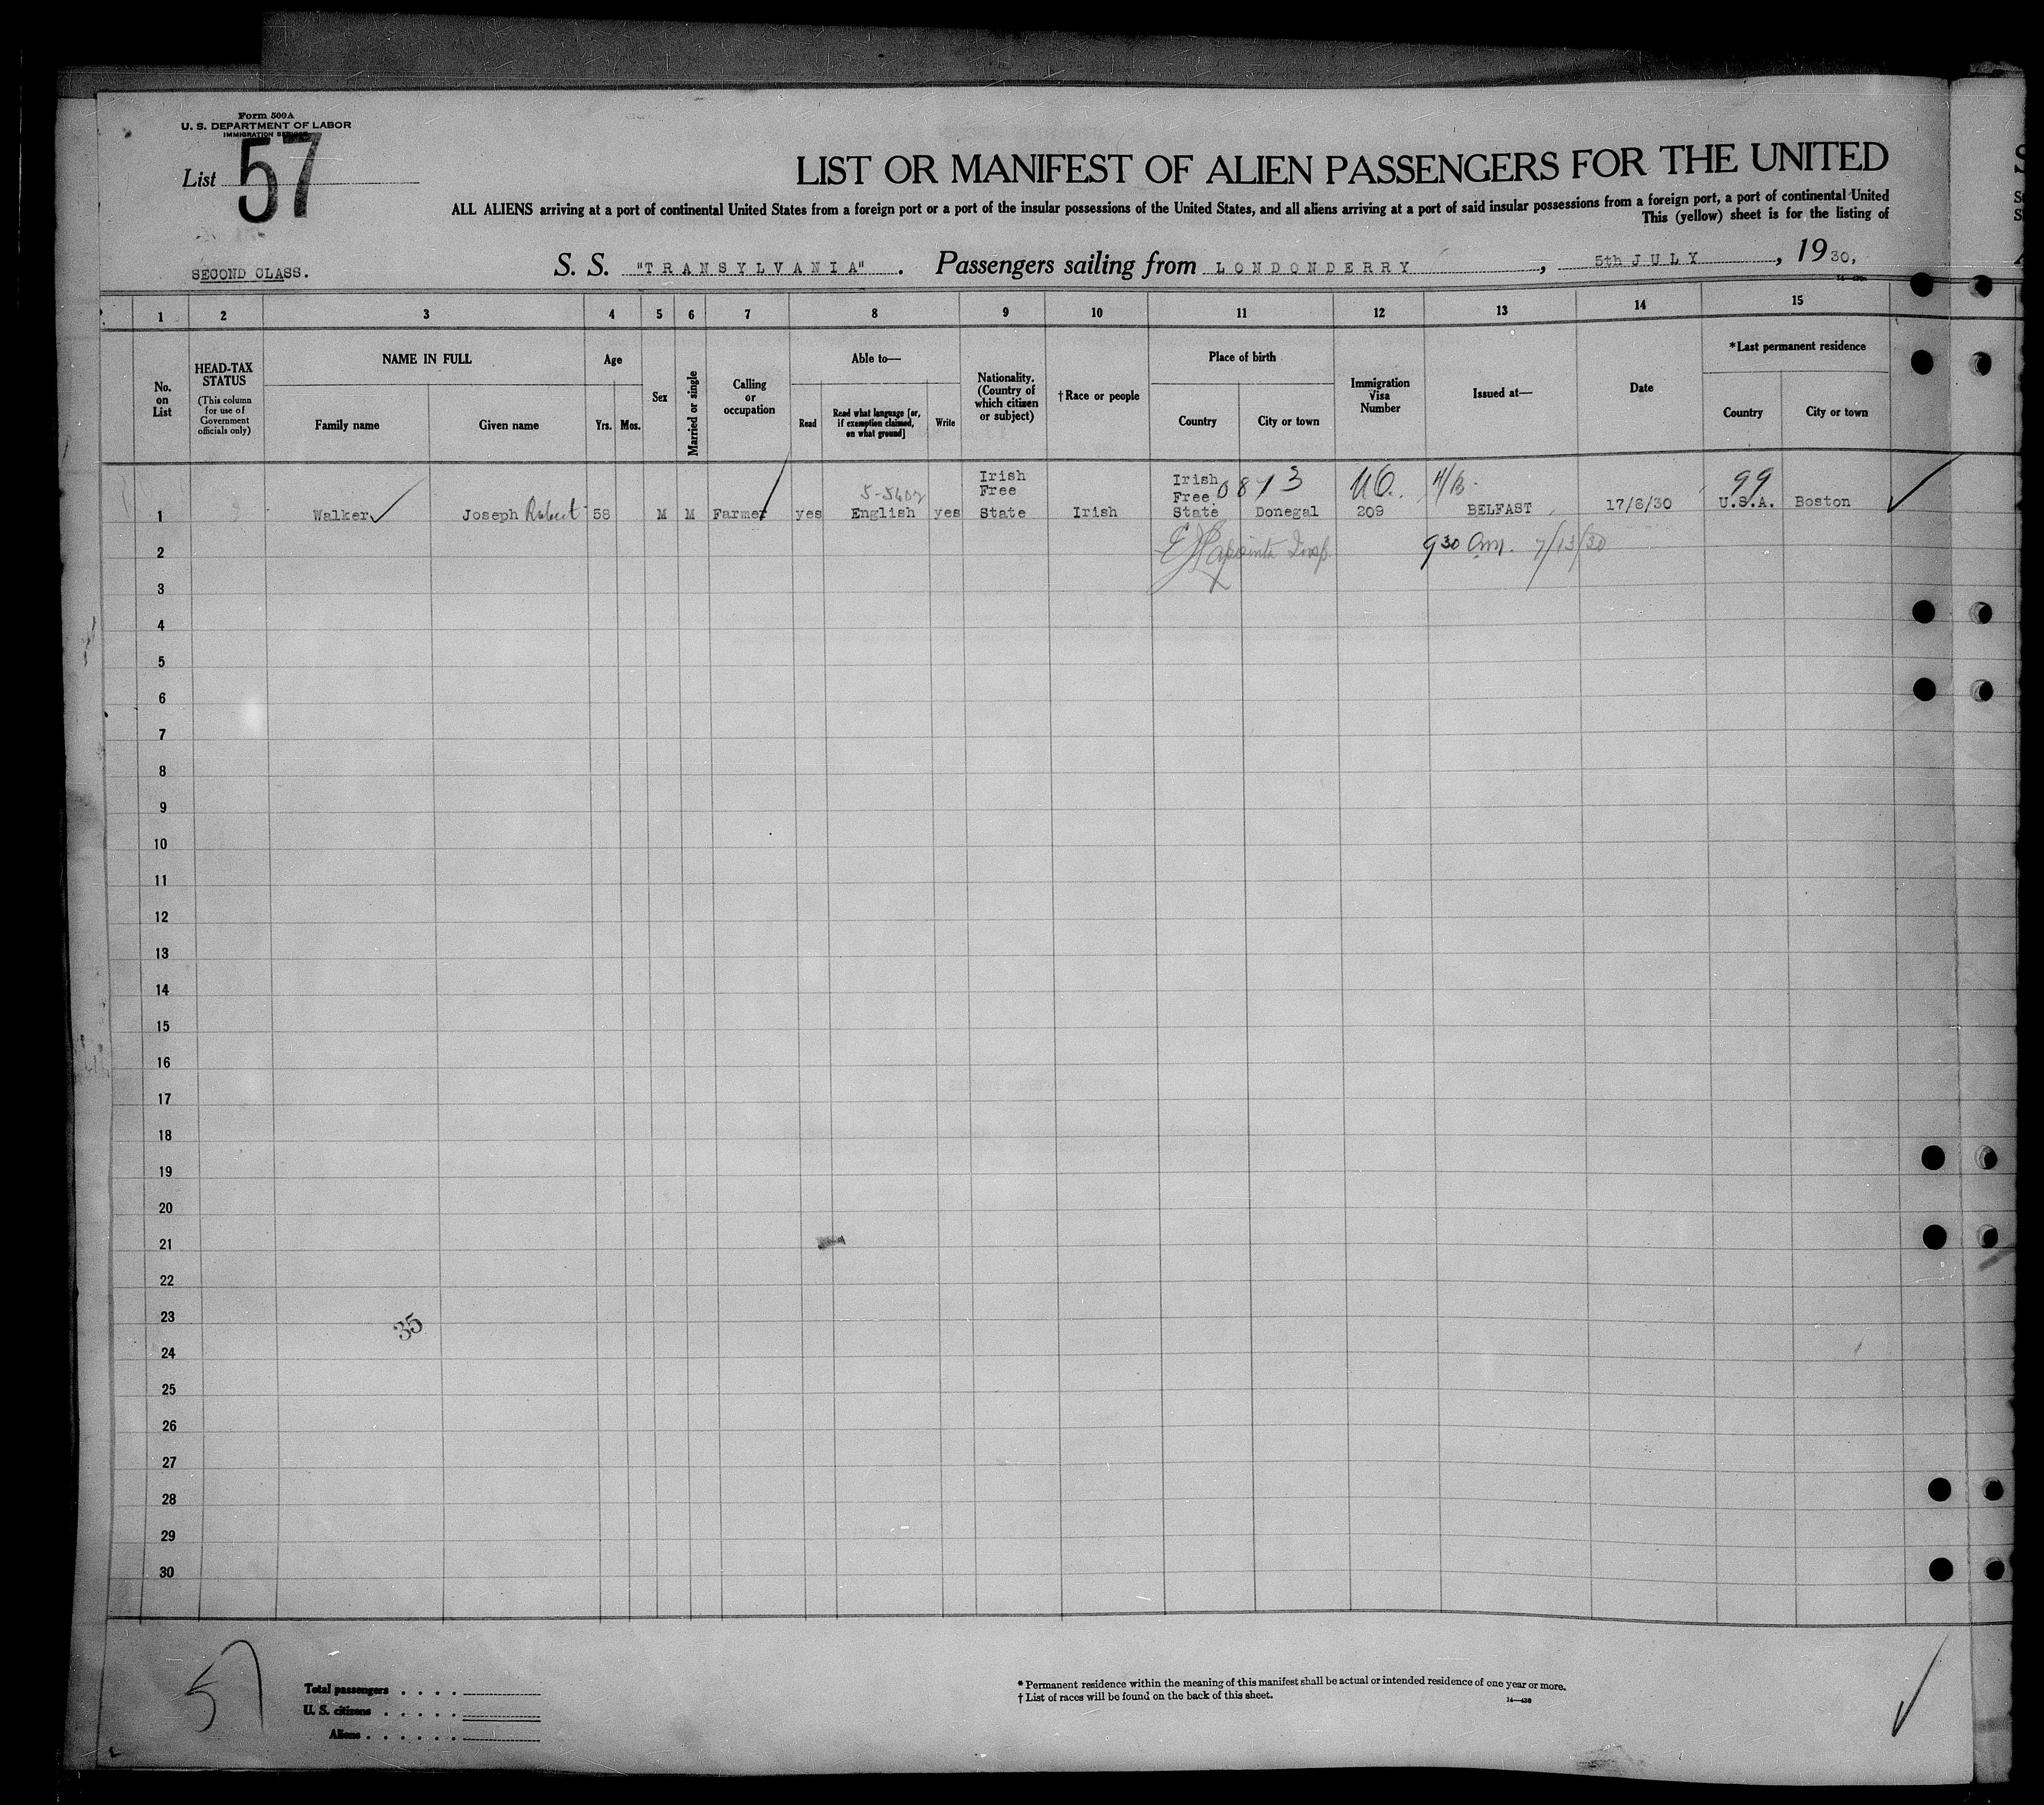 Form 500A
U. S. DEPARTMENT OF LABOR
IMMIGRATION SERVICE
List 57
LIST OR MANIFEST OF ALIEN PASSENGERS FOR THE UNITED
ALL ALIENS arriving at a port of continental United States from a foreign port or a port of the insular possessions of the United States, and all aliens arriving at a port of said insular possessions from a foreign port, a port of continental United
This (yellow) sheet is for the listing of
SECOND CLASS.
S. S. "TRANSYLVANIA". Passengers sailing from LONDONDERRY, 5th JULY, 1930,
1 2 3 4 5 6 7 8 9 10 11 12 13 14 15
No. on List
HEAD-TAX STATUS (This column for use of Government officials only)
NAME IN FULL
Family name
Given name
Age
Yrs. Mos.
Sex
Married or single
Calling or occupation
Able to—
Read
Read what language [or, if exemption claimed, on what ground]
Write
Nationality. (Country of which citizen or subject)
†Race or people
Place of birth
Country
City or town
Immigration Visa Number
Issued at—
Date
*Last permanent residence
Country
City or town
1 Walker Joseph Robert 58 M M Farmer yes English yes Irish Free State Irish Irish Free State Donegal 209 BELFAST 17/6/30 U.S.A. Boston
5-5402 0873 99
2 930 am. 7/13/30
3
4
5
6
7
8
9
10
11
12
13
14
15
16
17
18
19
20
21
22
23
35
24
25
26
27
28
29
30
57
Total passengers . . . .
U. S. citizens . . . . .
Aliens . . . . . .
* Permanent residence within the meaning of this manifest shall be actual or intended residence of one year or more.
† List of races will be found on the back of this sheet.
14—430